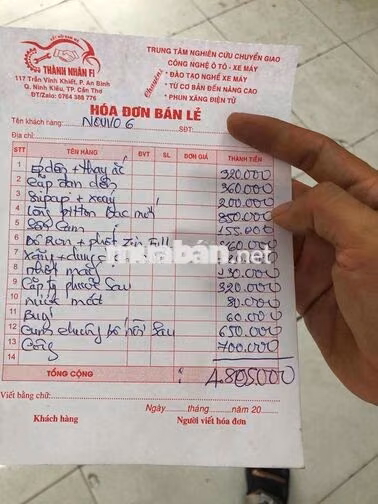 KẾT NỐI ĐAM MÊ
THÀNH NHÂN FI
117 Trần Vĩnh Khiết, P. An Bình
Q. Ninh Kiều, TP. Cần Thơ
ĐT/Zalo: 0764 388 776
Chuyên:
TRUNG TÂM NGHIÊN CỨU CHUYỂN GIAO
CÔNG NGHỆ Ô TÔ - XE MÁY
- ĐÀO TẠO NGHỀ XE MÁY
- TỪ CƠ BẢN ĐẾN NÂNG CAO
- PHUN XĂNG ĐIỆN TỬ
HÓA ĐƠN BÁN LẺ
Tên khách hàng: Nouvo 6 SĐT:
Địa chỉ:
STT TÊN HÀNG ĐVT SL ĐƠN GIÁ THÀNH TIỀN
1 + thay 320.000
2 Cặp đạn dên 360.000
3 Supap + xoáy 200.000
4 Lòng pitton bạc mới 850.000
5 Sên Cam 155.000
6 Bố Ron + phốt Full 360.000
7 Xăng +
8 nhớt máy 130.000
9 Cặp ty phuộc Sau 320.000
10 nước mát 80.000
11 Bugi 60.000
12 chuông bố nồi Sau 650.000
13 Công 700.000
14
TỔNG CỘNG : 4.805.000
Viết bằng chữ:
Ngày tháng năm 20
Khách hàng Người viết hóa đơn
muaban.net